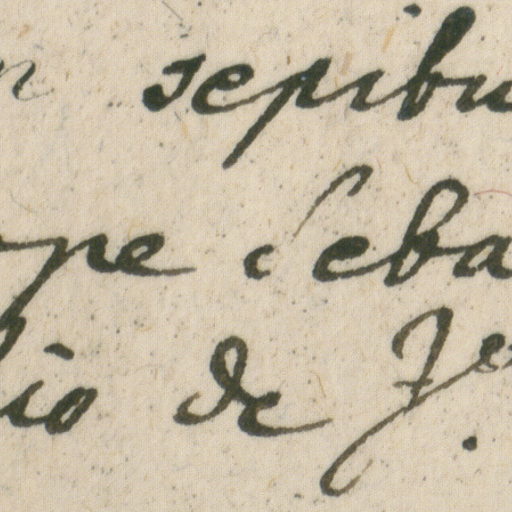 n sepibu
ope Seba
lio de J